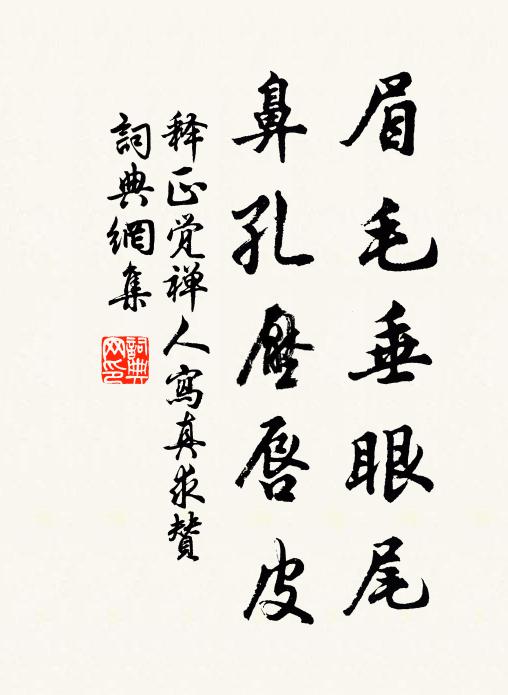 眉毛垂眼尾
鼻孔壓唇皮
释正觉禅人寫真求贊
詞典網集
詞典网印